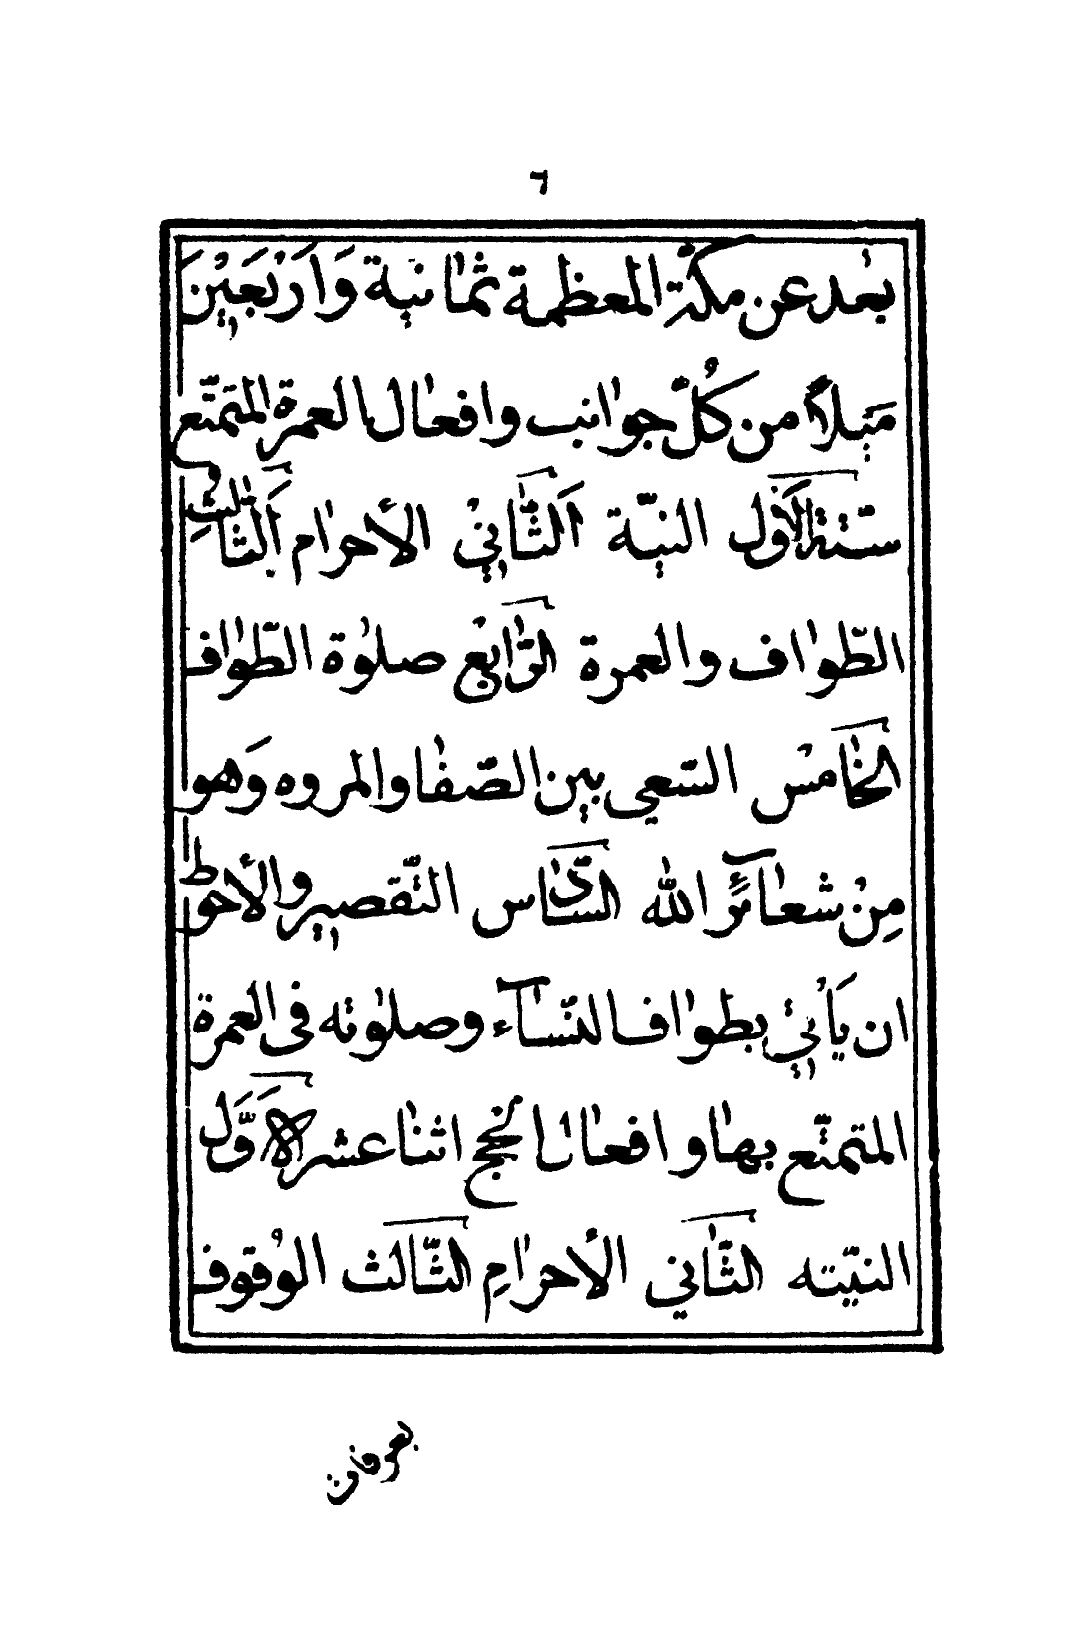 ٦
بعد عن مكّة المعظمة ثمانية وَاَربَعَيْنَ
مَيلاً من كُلّ جوانب وافعال العمرة المتمتّع
ستّة الاَوّل النيّة اَلثّاني الأحرام اَلثّالث
الطّواف والعمرة الرّابع صلوٰة الطّواف
الخامس السّعي بين الصّفا والمروه وَهو
مِنْ شعائر الله السّادس التّقصير والأحوط
ان يأتي بطواف النّسآء وصلوته فى العمرة
المتمتّع بها وافعال الحج اثنا عشر الاَوّل
النيّته الثّاني الأحرامِ الثّالث الوقوف
بعرفات